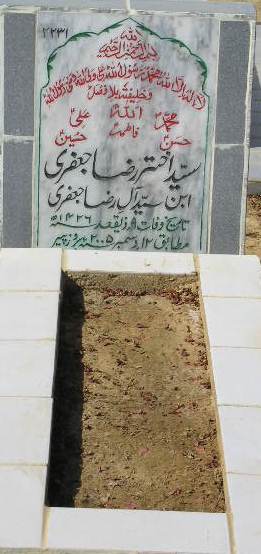 ۲۲۳۱
بسم اللہ الرحمن الرحیم
لا الہ الا اللہ محمد رسول اللہ علی ولی اللہ وصی رسول اللہ
وخلیفتہ بلا فصل
محمدؐ اللہ علیؑ
حسنؑ فاطمہؑ حسینؑ
سید اختر رضا جعفری
ابن سید آل رضا جعفری
تاریخ وفات ۹ ذیقعد ۱۴۲۶ھ
مطابق ۱۲ دسمبر ۲۰۰۵ بروز پیر